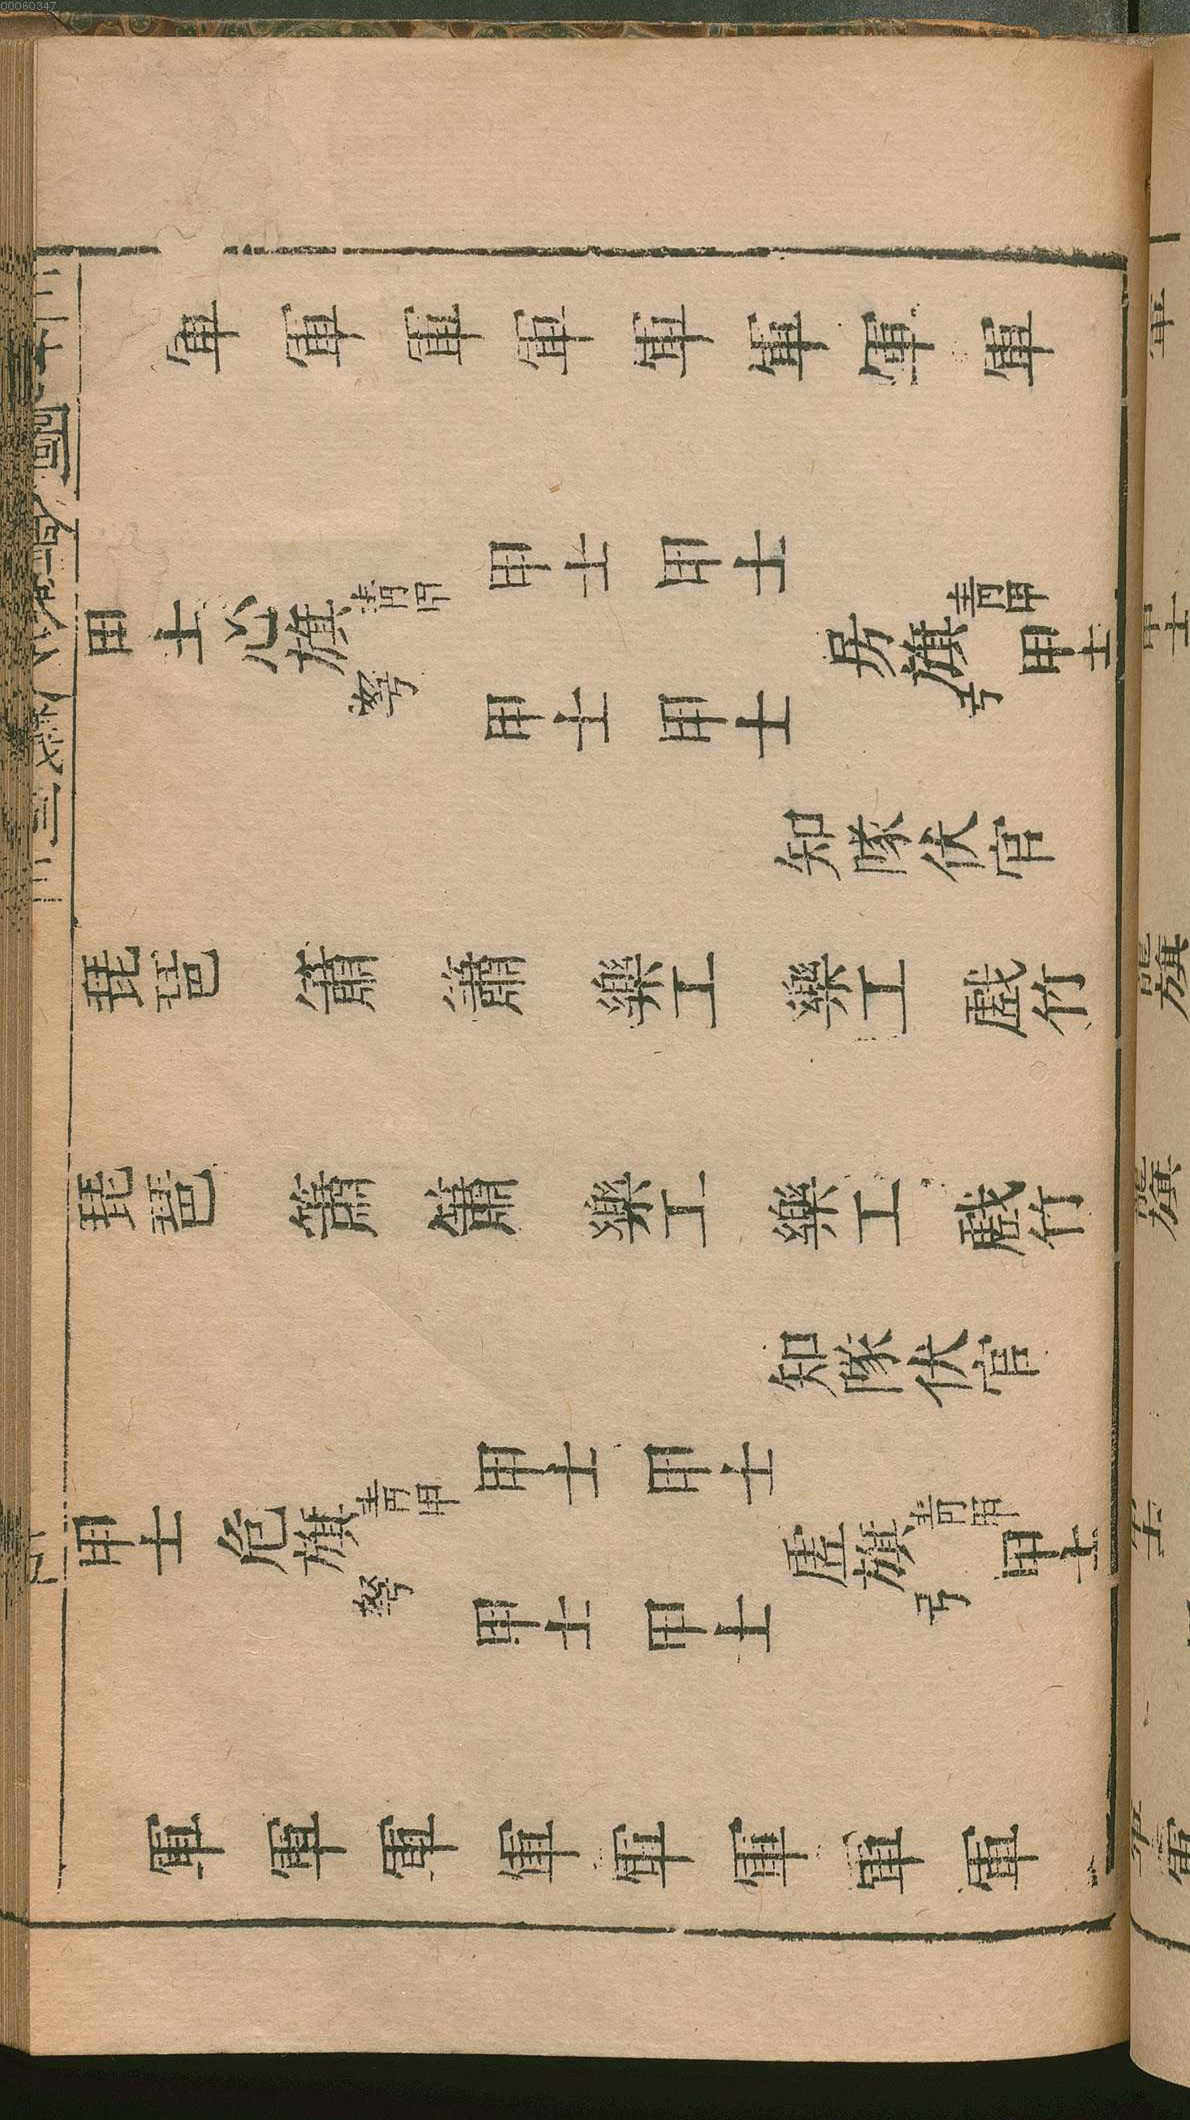 軍 軍 軍 軍 軍 軍 軍 軍
甲士 甲士
青甲 青甲
甲士 心旗 房旗 甲士
弩 弓
甲士 甲士
知隊仗官
琵琶 簫 簫 樂工 樂工 戲竹
琵琶 簫 簫 樂工 樂工 戲竹
知隊仗官
甲士 甲士
青甲 青甲
甲士 危旗 虛旗 甲士
弩 弓
甲士 甲士
軍 軍 軍 軍 軍 軍 軍 軍
三才圖會
00060347